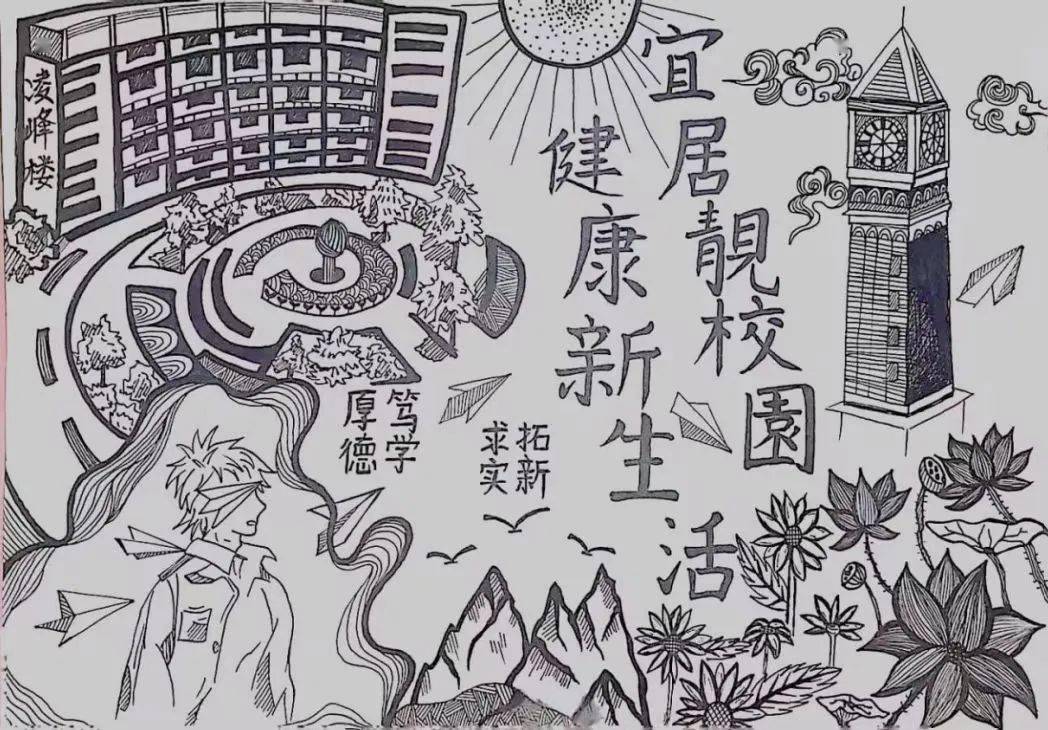 凌峰楼
宜居靓校園
健康新生活
笃学
厚德
拓新
求实